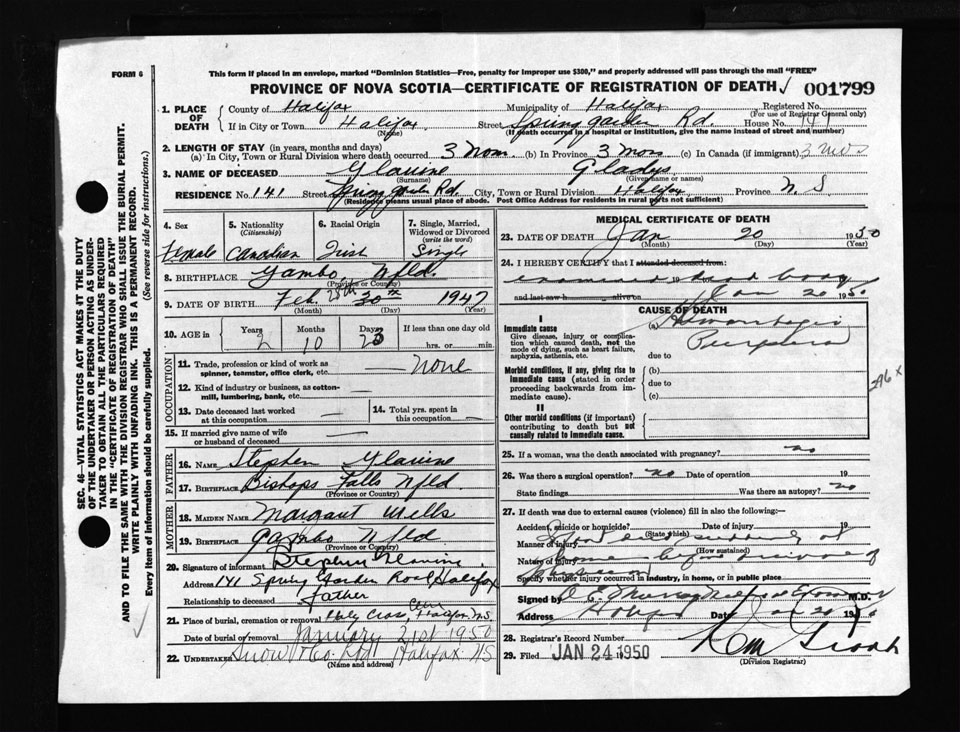 FORM 6
This form if placed in an envelope, marked "Dominion Statistics—Free, penalty for improper use $300," and properly addressed will pass through the mail "FREE"
PROVINCE OF NOVA SCOTIA—CERTIFICATE OF REGISTRATION OF DEATH 001799
1. PLACE OF DEATH County of Halifax Municipality of Halifax Registered No.
(For use of Registrar General only)
If in City or Town Halifax Street Spring Garden Rd. House No. 141
(Name) (If death occurred in a hospital or institution, give the name instead of street and number)
2. LENGTH OF STAY (in years, months and days)
(a) In City, Town or Rural Division where death occurred 3 mon. (b) In Province 3 mos (c) In Canada (if immigrant) 3 mos
3. NAME OF DECEASED Glavine Gladys
(Surname) (Given name or names)
RESIDENCE No. 141 Street Spring Garden Rd. City, Town or Rural Division Halifax Province N. S
(Residents means usual place of abode. Post Office Address for residents in rural parts not sufficient)
4. Sex 5. Nationality (Citizenship) 6. Racial Origin 7. Single, Married, Widowed or Divorced (write the word)
Female Canadian Irish Single
8. BIRTHPLACE Gambo, Nfld.
(Province or Country)
9. DATE OF BIRTH Feb. 28th 1947
(Month) (Day) (Year)
10. AGE in Years Months Days If less than one day old
2 10 hrs. or min.
OCCUPATION
11. Trade, profession or kind of work as spinner, teamster, office clerk, etc. None
12. Kind of industry or business, as cotton-mill, lumbering, bank, etc.
13. Date deceased last worked at this occupation 14. Total yrs. spent in this occupation
15. If married give name of wife or husband of deceased
FATHER
16. NAME Stephen Glavine
17. BIRTHPLACE Bishops Falls Nfld.
(Province or Country)
MOTHER
18. MAIDEN NAME Margaret Wells
19. BIRTHPLACE Gambo Nfld
(Province or Country)
20. Signature of informant Stephen Glavine
Address 141 Spring Garden Road Halifax
Relationship to deceased father
21. Place of burial, cremation or removal Holy Cross Cem Halifax N.S.
Date of burial or removal January 21st 1950
22. UNDERTAKER Snow & Co. Ltd Halifax NS
(Name and address)
MEDICAL CERTIFICATE OF DEATH
23. DATE OF DEATH Jan 20 1950
(Month) (Day) (Year)
24. I HEREBY CERTIFY that I attended deceased from:
examined dead body
and last saw h alive on Jan 20 1950
CAUSE OF DEATH
I
Immediate cause
Give disease, injury or complication which caused death, not the mode of dying, such as heart failure, asphyxia, asthenia, etc.
(a) Hemorrhagic
Purpura
due to
Morbid conditions, if any, giving rise to immediate cause (stated in order proceeding backwards from immediate cause).
(b)
due to
(c)
II
Other morbid conditions (if important) contributing to death but not causally related to immediate cause.
25. If a woman, was the death associated with pregnancy? no
26. Was there a surgical operation? no Date of operation 19
State findings Was there an autopsy? no
27. If death was due to external causes (violence) fill in also the following:
Accident, suicide or homicide? Date of injury 19
(State which)
Manner of injury
(How sustained)
Nature of injury
Specify whether injury occurred in industry, in home, or in public place
Signed by M.D.
Address Halifax Date Jan 20 1950
28. Registrar's Record Number
29. Filed JAN 24 1950
(Division Registrar)
SEC. 46—VITAL STATISTICS ACT MAKES IT THE DUTY OF THE UNDERTAKER OR PERSON ACTING AS UNDERTAKER TO OBTAIN ALL THE PARTICULARS REQUIRED IN THE "CERTIFICATE OF REGISTRATION OF DEATH"
AND TO FILE THE SAME WITH THE DIVISION REGISTRAR WHO SHALL ISSUE THE BURIAL PERMIT.
WRITE PLAINLY WITH UNFADING INK. THIS IS A PERMANENT RECORD.
Every item of information should be carefully supplied. (See reverse side for instructions.)